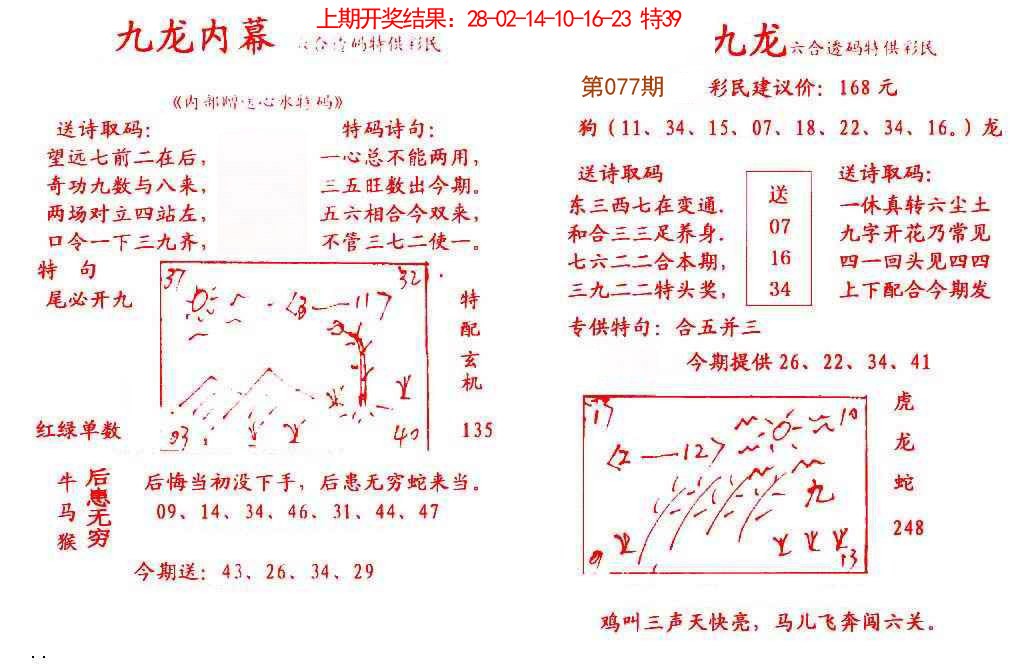 上期开奖结果：28-02-14-10-16-23 特39
九龙内幕 六合透码特供彩民
《内部赠送心水特码》
送诗取码：
望远七前二在后，
奇功九数与八来，
两场对立四站左，
口令一下三九齐，
特码诗句：
一心总不能两用，
三五旺数出今期。
五六相合今双来，
不管三七二使一。
特 句
尾必开九
红绿单数
37
32
〈3—11〉
03
40
特
配
玄
机
135
牛
马
猴
后患无穷
后悔当初没下手，后患无穷蛇来当。
09、14、34、46、31、44、47
今期送：43、26、34、29
九龙 六合透码特供彩民
第077期
彩民建议价：168 元
狗（11、34、15、07、18、22、34、16。）龙
送诗取码
东三西七在变通．
和合三三足养身．
七六二二合本期，
三九二二特头奖，
送
07
16
34
送诗取码：
一休真转六尘土
九字开花乃常见
四一回头见四四
上下配合今期发
专供特句：合五并三
今期提供 26、22、34、41
13
10
〈2—12〉
九
9
13
虎
龙
蛇
248
鸡叫三声天快亮，马儿飞奔闯六关。